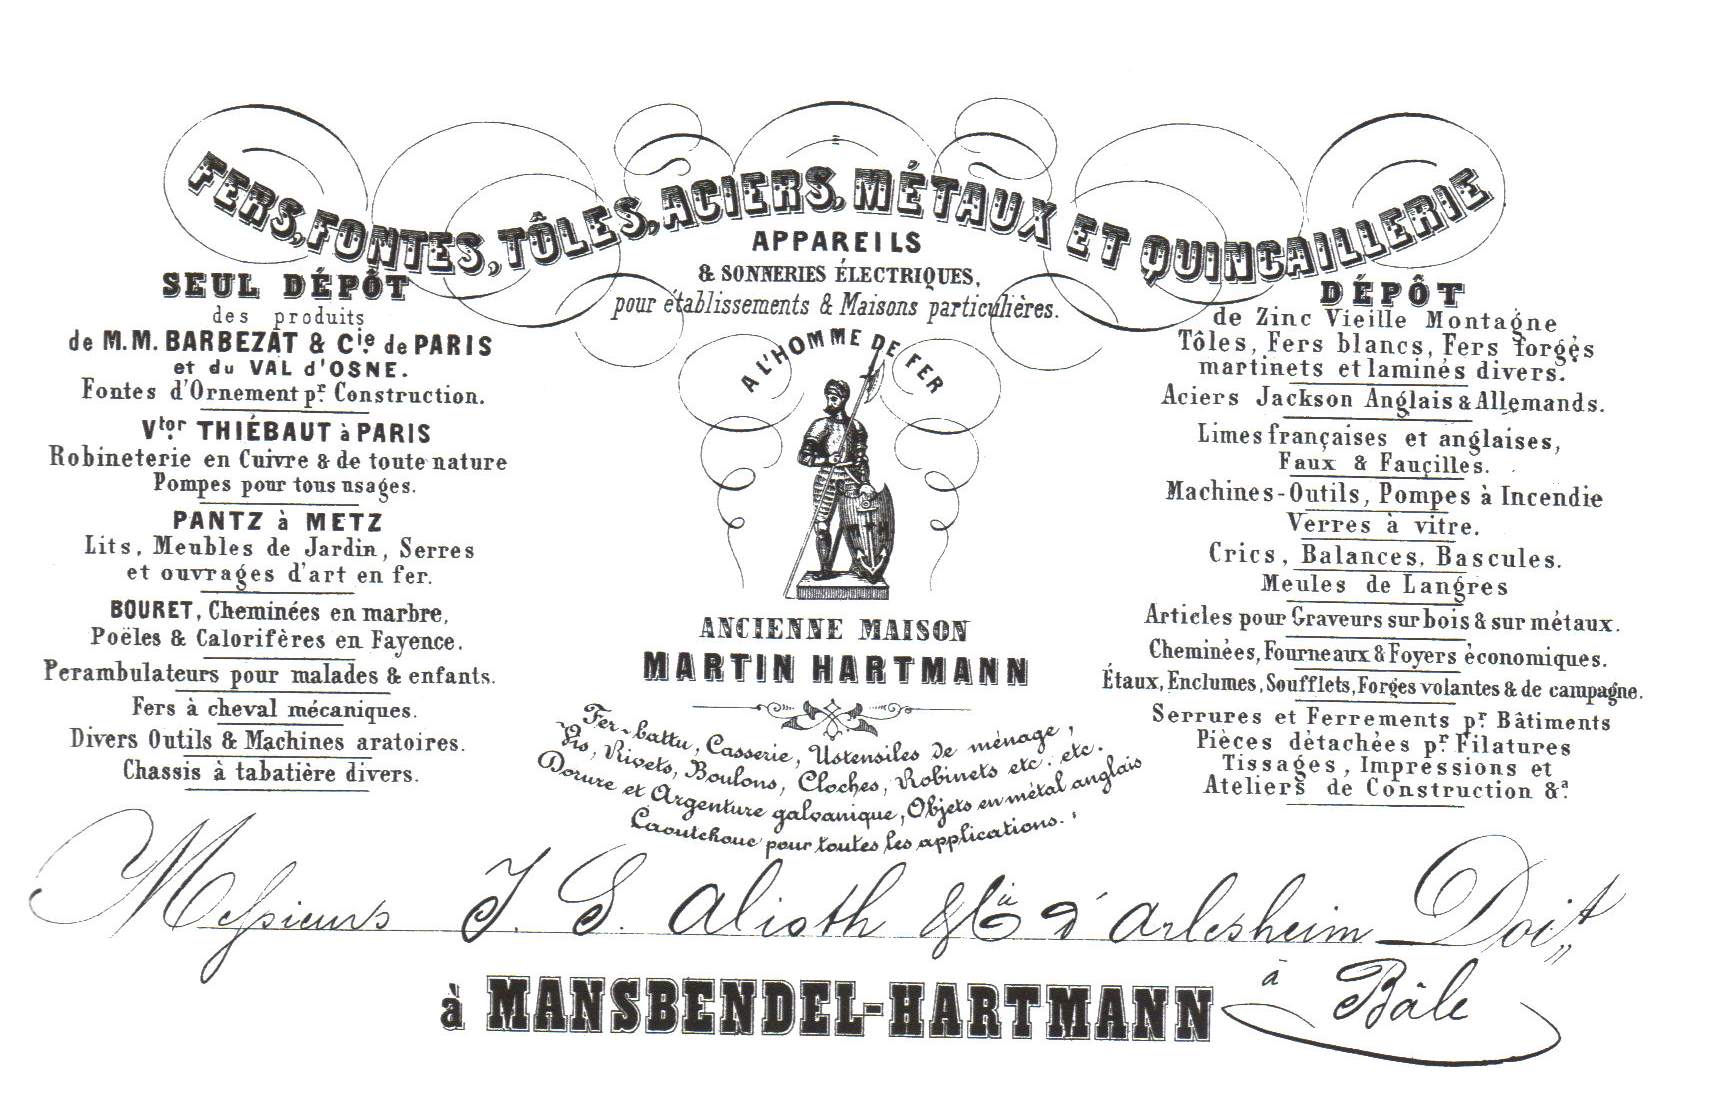 FERS, FONTES, TÔLES, ACIERS, MÉTAUX ET QUINCAILLERIE
APPAREILS
& SONNERIES ÉLECTRIQUES,
pour établissements & Maisons particulières.
SEUL DÉPÔT
des produits
de M.M. BARBEZAT & Cie. de PARIS
et du VAL d'OSNE.
Fontes d'Ornement pr. Construction.
Vtor. THIÉBAUT à PARIS
Robineterie en Cuivre & de toute nature
Pompes pour tous usages.
PANTZ à METZ
Lits, Meubles de Jardin, Serres
et ouvrages d'art en fer.
BOURET, Cheminées en marbre,
Poëles & Calorifères en Fayence.
Perambulateurs pour malades & enfants.
Fers à cheval mécaniques.
Divers Outils & Machines aratoires.
Chassis à tabatière divers.
A L'HOMME DE FER
M H
ANCIENNE MAISON
MARTIN HARTMANN
Fer-battu, Casserie, Ustensiles de ménage,
Vis, Rivets, Boulons, Cloches, Robinets etc. etc.
Dorure et Argenture galvanique, Objets en métal anglais
Caoutchouc pour toutes les applications.
DÉPÔT
de Zinc Vieille Montagne
Tôles, Fers blancs, Fers forgés
martinets et laminés divers.
Aciers Jackson Anglais & Allemands.
Limes françaises et anglaises,
Faux & Fauçilles.
Machines-Outils, Pompes à Incendie
Verres à vitre.
Crics, Balances, Bascules.
Meules de Langres
Articles pour Graveurs sur bois & sur métaux.
Cheminées, Fourneaux & Foyers èconomiques.
Étaux, Enclumes, Soufflets, Forges volantes & de campagne.
Serrures et Ferrements pr. Bâtiments
Pièces détachées pr. Filatures
Tissages, Impressions et
Ateliers de Construction &a.
Messieurs J. S. Alioth & Cie d'Arlesheim Doivt
à Bâle
à MANSBENDEL-HARTMANN